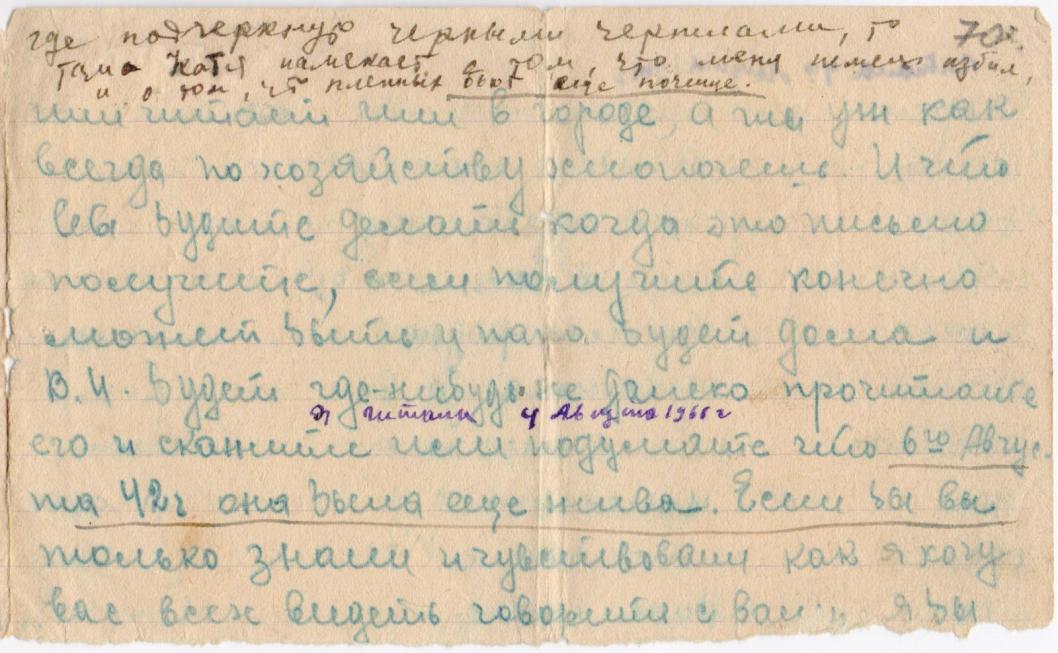 где подчеркнуто черными чернилами, то
70г.
там Катя намекает о том, что меня немец избил,
и о том, что пленных бьют еще почище.
или читает или в городе, а ты уж как
всегда по хозяйству хлопочешь. И что
вы будите делать когда это письмо
получите, если получите конечно
может быть и папа будет дома и
В.И. будет где-нибудь не далеко прочитаете
Я читала 4 Августа 1966 г
его и скажите или подумаете что 6го Авгус-
та 42г она была еще жива. Если бы вы
только знали и чувствовали как я хочу
вас всех видеть говорить с вами, я бы